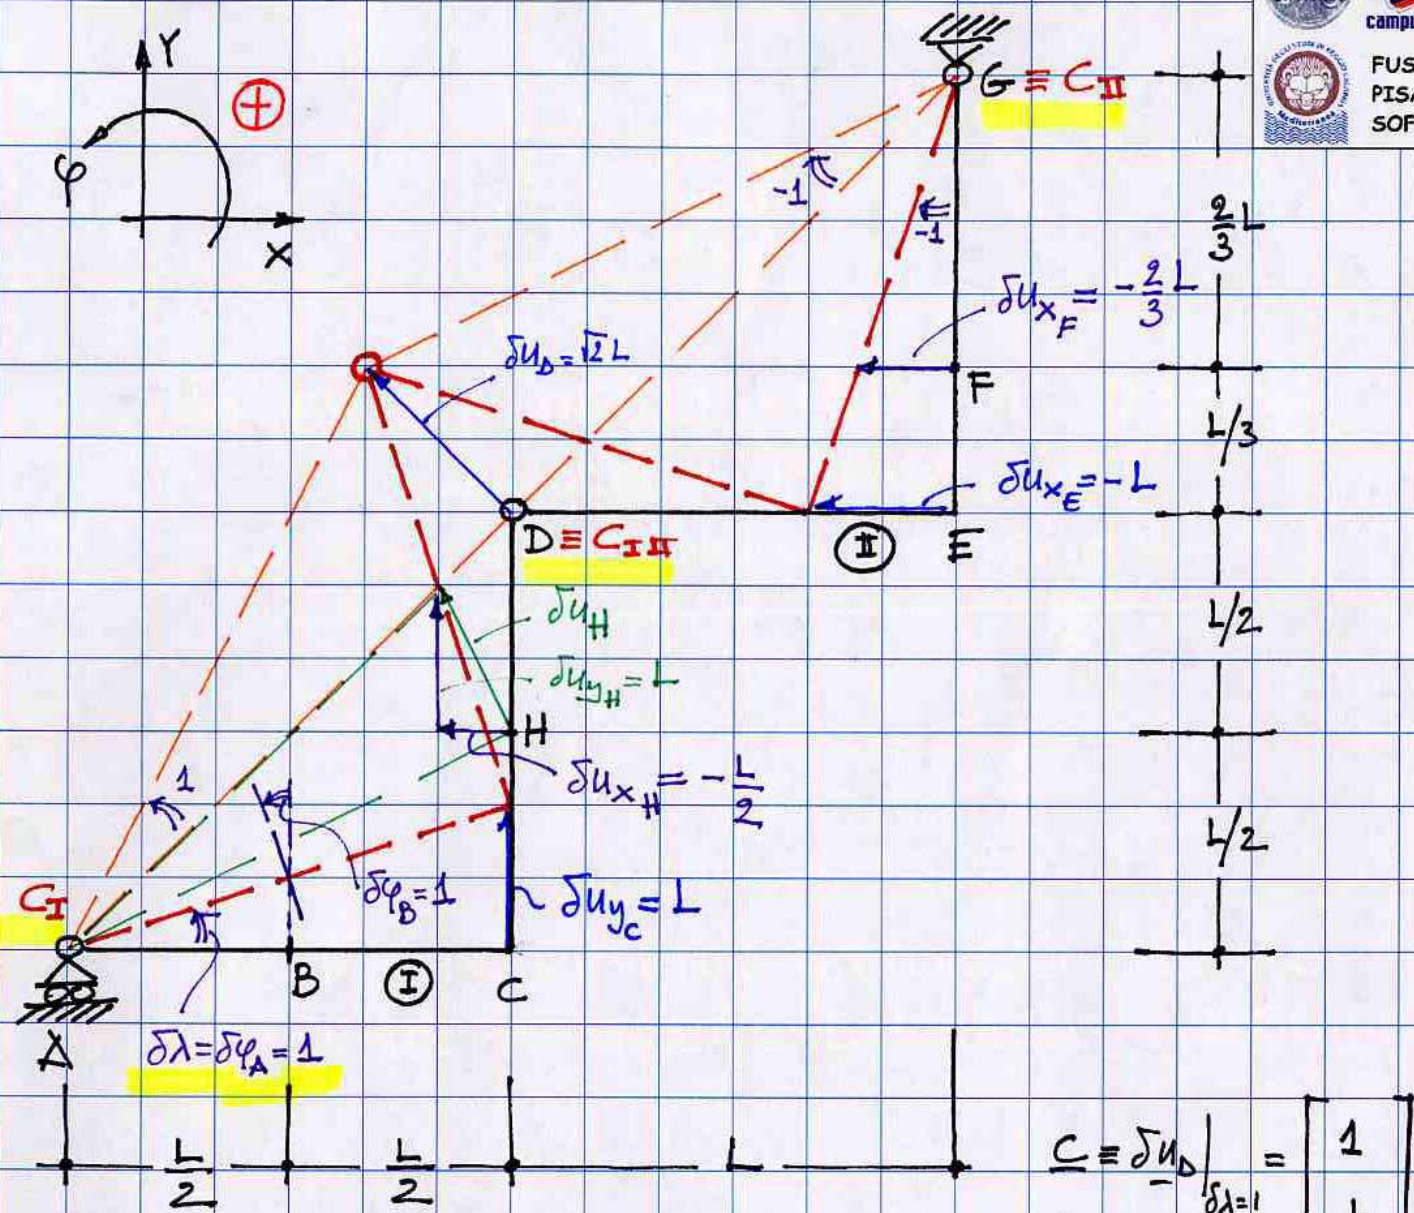 Y
φ
X
+
G ≡ C_II
camp
FUS
PISA
SOF
-1
-1
2/3 L
δu_xF = -2/3 L
δu_D = √2 L
F
L/3
δu_xE = -L
D ≡ C_I II
II
E
δu_H
L/2
δu_yH = L
H
δu_xH = -L/2
1
L/2
C_I
δφ_B = 1
δu_yC = L
B
I
C
A
δλ = δφ_A = 1
L/2
L/2
L
C ≡ δu_D |δλ=1 = [ 1